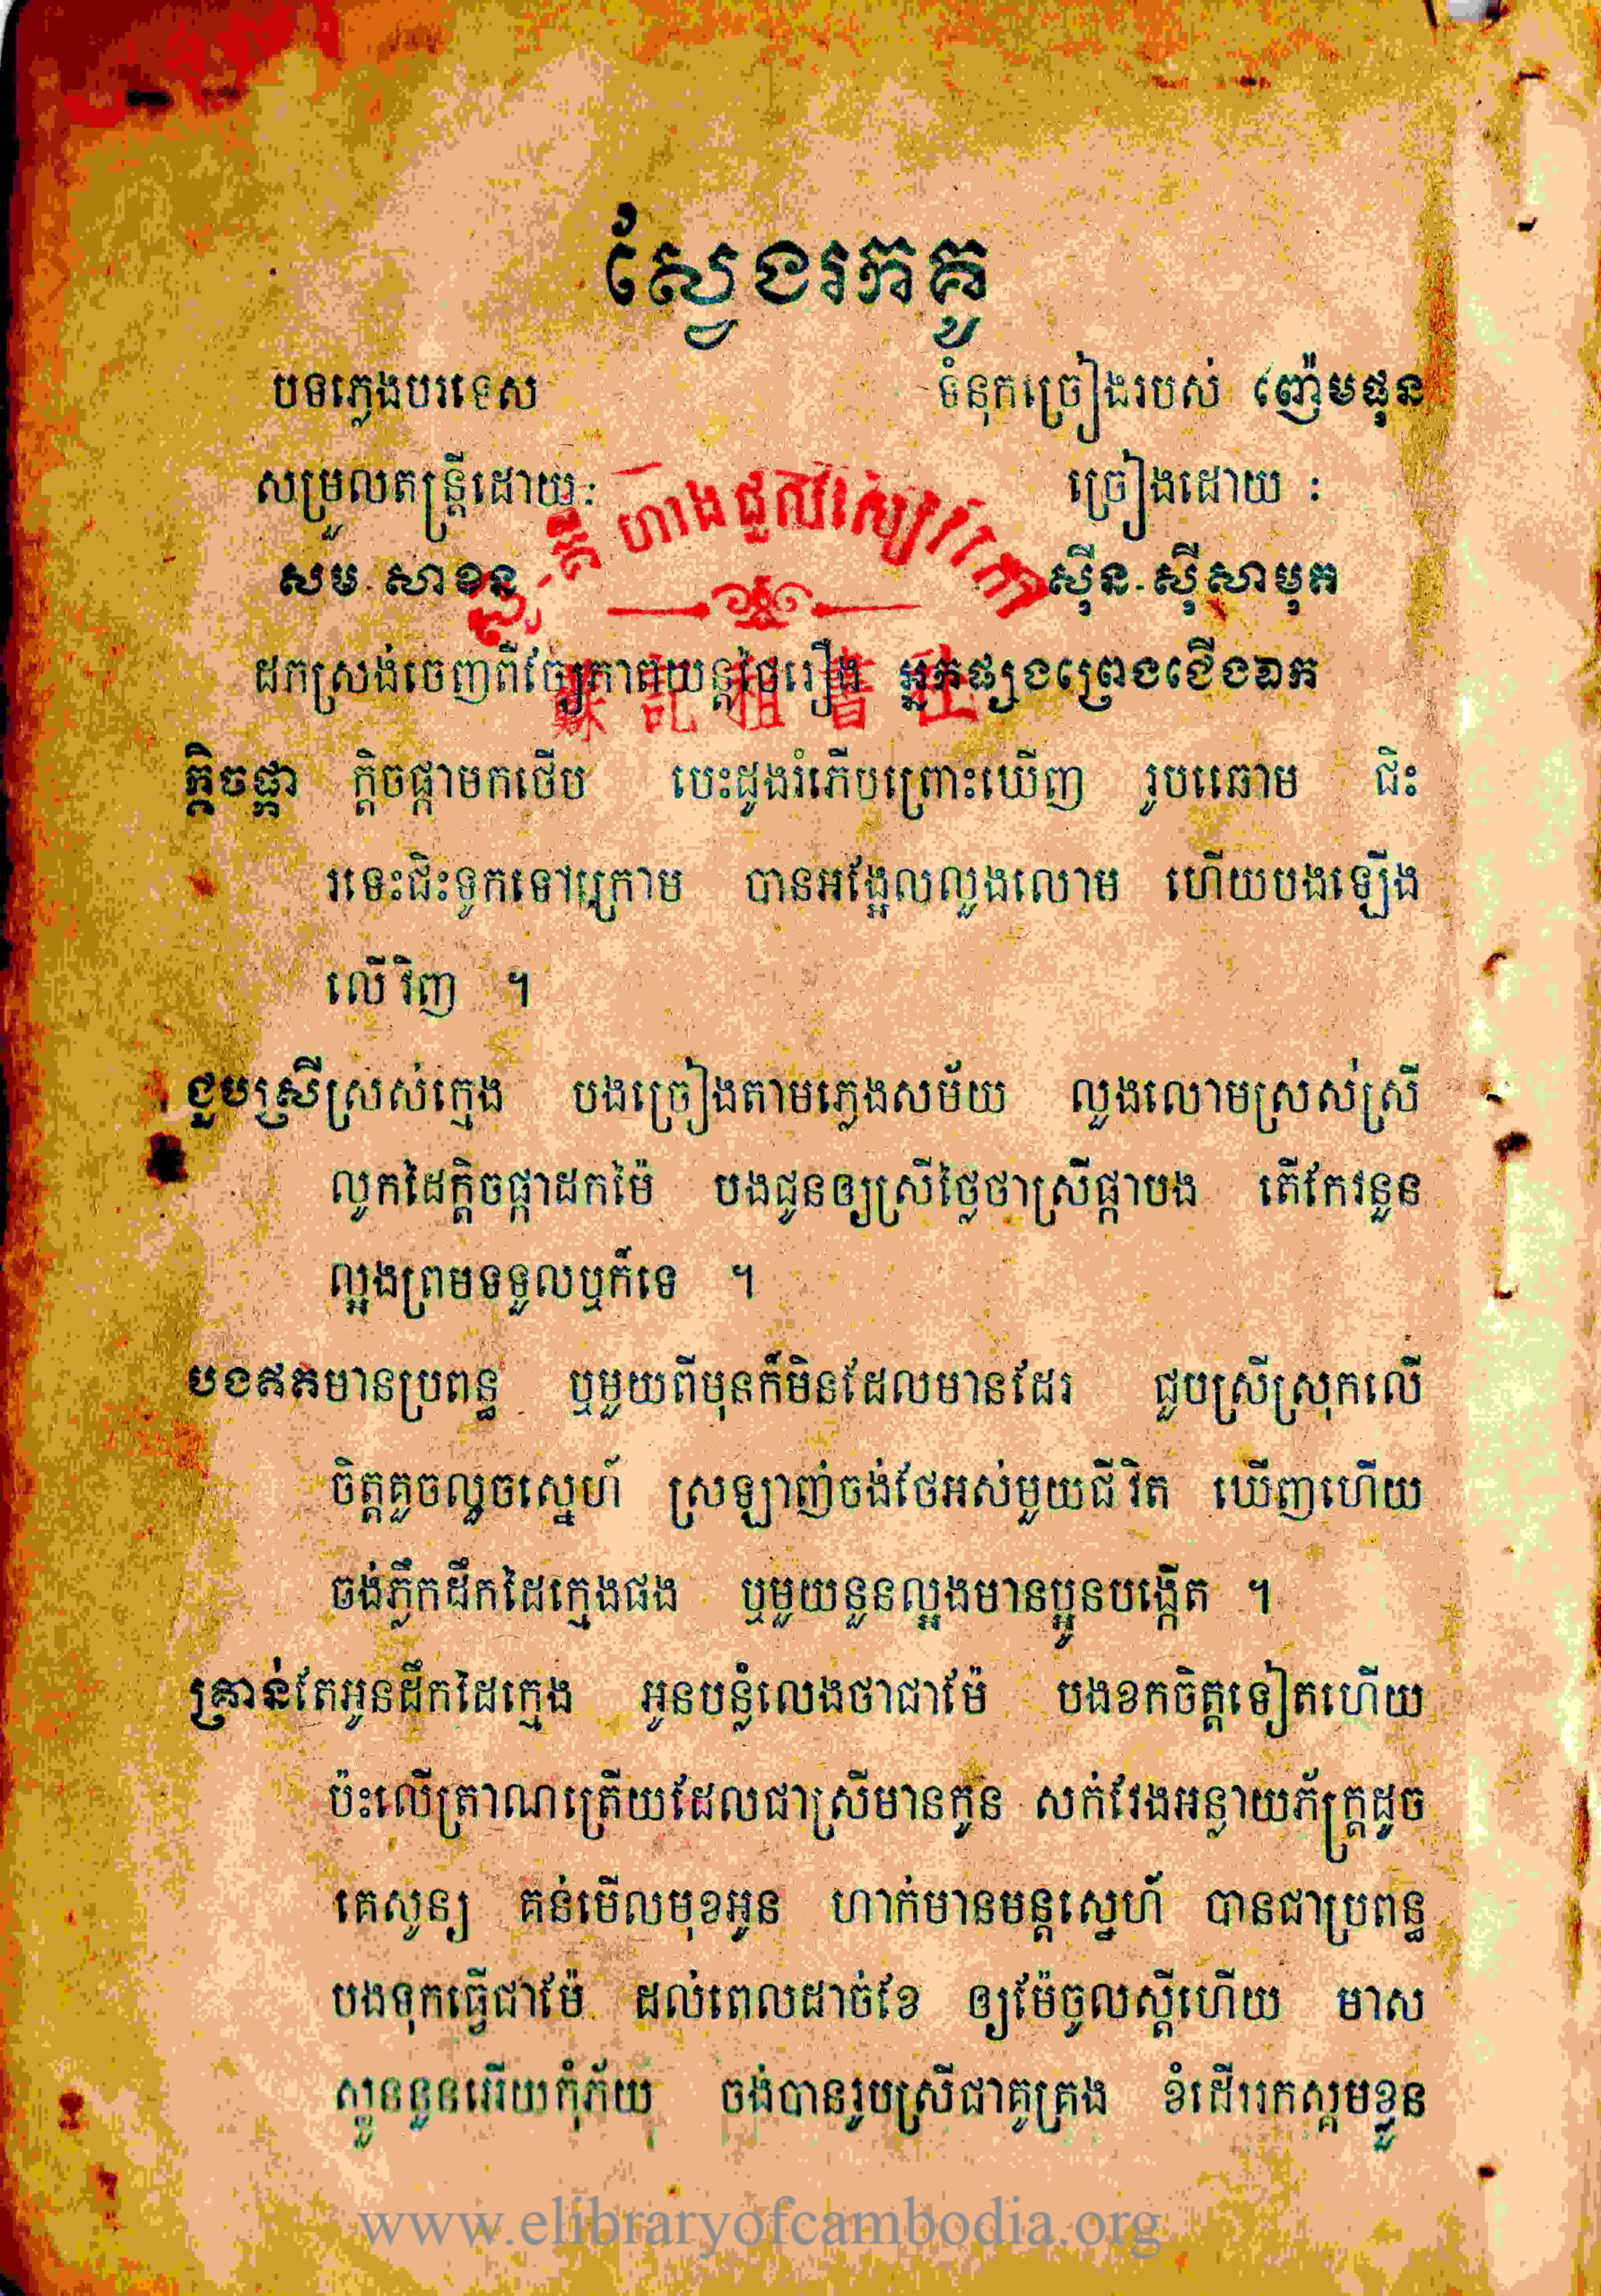 ស្វែងរកគូ
បទភ្លេងបរទេស ទំនុកច្រៀងរបស់ ញ៉ែមដុន
សម្រួលតន្ត្រីដោយ: ច្រៀងដោយ :
សម.សាខន ស៊ីន.ស៊ីសាមុត
ដកស្រង់ចេញពីខ្សែភាពយន្តថៃរឿង អ្នកផ្សងព្រេងជើងឯក
ហាងជួលសៀវភៅ
ក្តិចផ្កា ក្តិចផ្កាមកថើប បេះដូងរំភើបព្រោះឃើញ រូបឆោម ជិះ
រទេះជិះទូកទៅក្រោម បានអង្អែលលួងលោម ហើយបងឡើង
លើវិញ ។
ជួបស្រីស្រស់ក្មេង បងច្រៀងតាមភ្លេងសម័យ លួងលោមស្រស់ស្រី
លូកដៃក្តិចផ្កាដកម៉ៃ បងជូនឲ្យស្រីថ្លៃថាស្រីផ្កាបង តើកែវនួន
ល្អងព្រមទទួលឬក៏ទេ ។
បងឥតមានប្រពន្ធ ឬមួយពីមុនក៏មិនដែលមានដែរ ជួបស្រីស្រុកលើ
ចិត្តគួចលួចស្នេហ៍ ស្រឡាញ់ចង់ថែអស់មួយជីវិត ឃើញហើយ
ចង់ភ្លឹកដឹកដៃក្មេងផង ឬមួយនួនល្អងមានប្អូនបង្កើត ។
គ្រាន់តែអូនដឹកដៃក្មេង អូនបន្លំលេងថាជាម៉ែ បងខកចិត្តទៀតហើយ
ប៉ះលើត្រាណត្រើយដែលជាស្រីមានកូន សក់វែងអន្លាយភ័ក្ត្រដូច
គេសូន្យ គន់មើលមុខអូន ហាក់មានមន្តស្នេហ៍ បានជាប្រពន្ធ
បងទុកធ្វើជាម៉ែ ដល់ពេលដាច់ខែ ឲ្យម៉ែចូលស្តីហើយ មាស
ស្ងួននួនអើយកុំភ័យ ចង់បានរូបស្រីជាគូគ្រង ខំដើររកស្គមខ្លួន
www.elibraryofcambodia.org